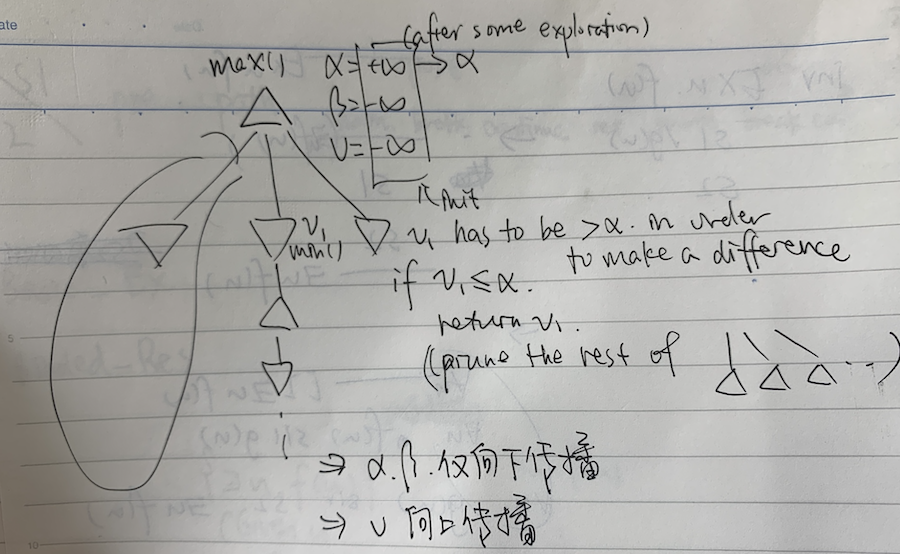 ate
(after some exploration)
max() α= +∞ → α
β= -∞
υ= -∞
init
υ₁ υ₁ has to be >α. in order
min() to make a difference
if υ₁≤α.
return υ₁.
5
(prune the rest of ...)
⇒ α.β.仅向下传播
⇒ υ 向上传播
10